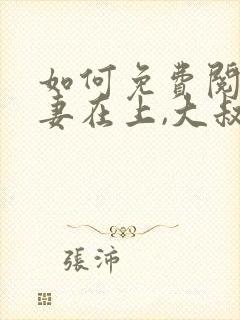 如何免費閱
妻在上,大叔
張沛